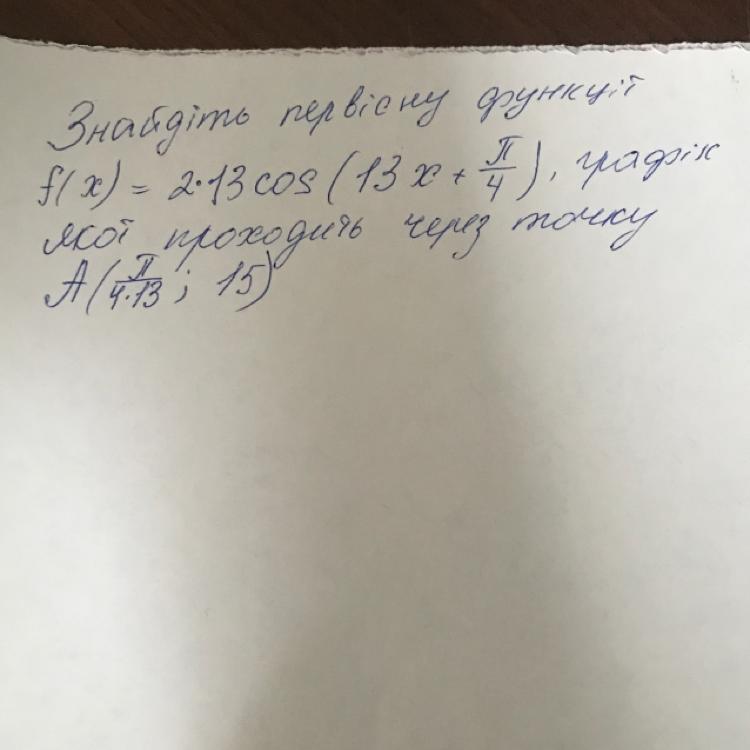 Знайдіть первісну функції
f(x) = 2·13cos(13x + π/4), графік
якої проходить через точку
A(π/4·13; 15)